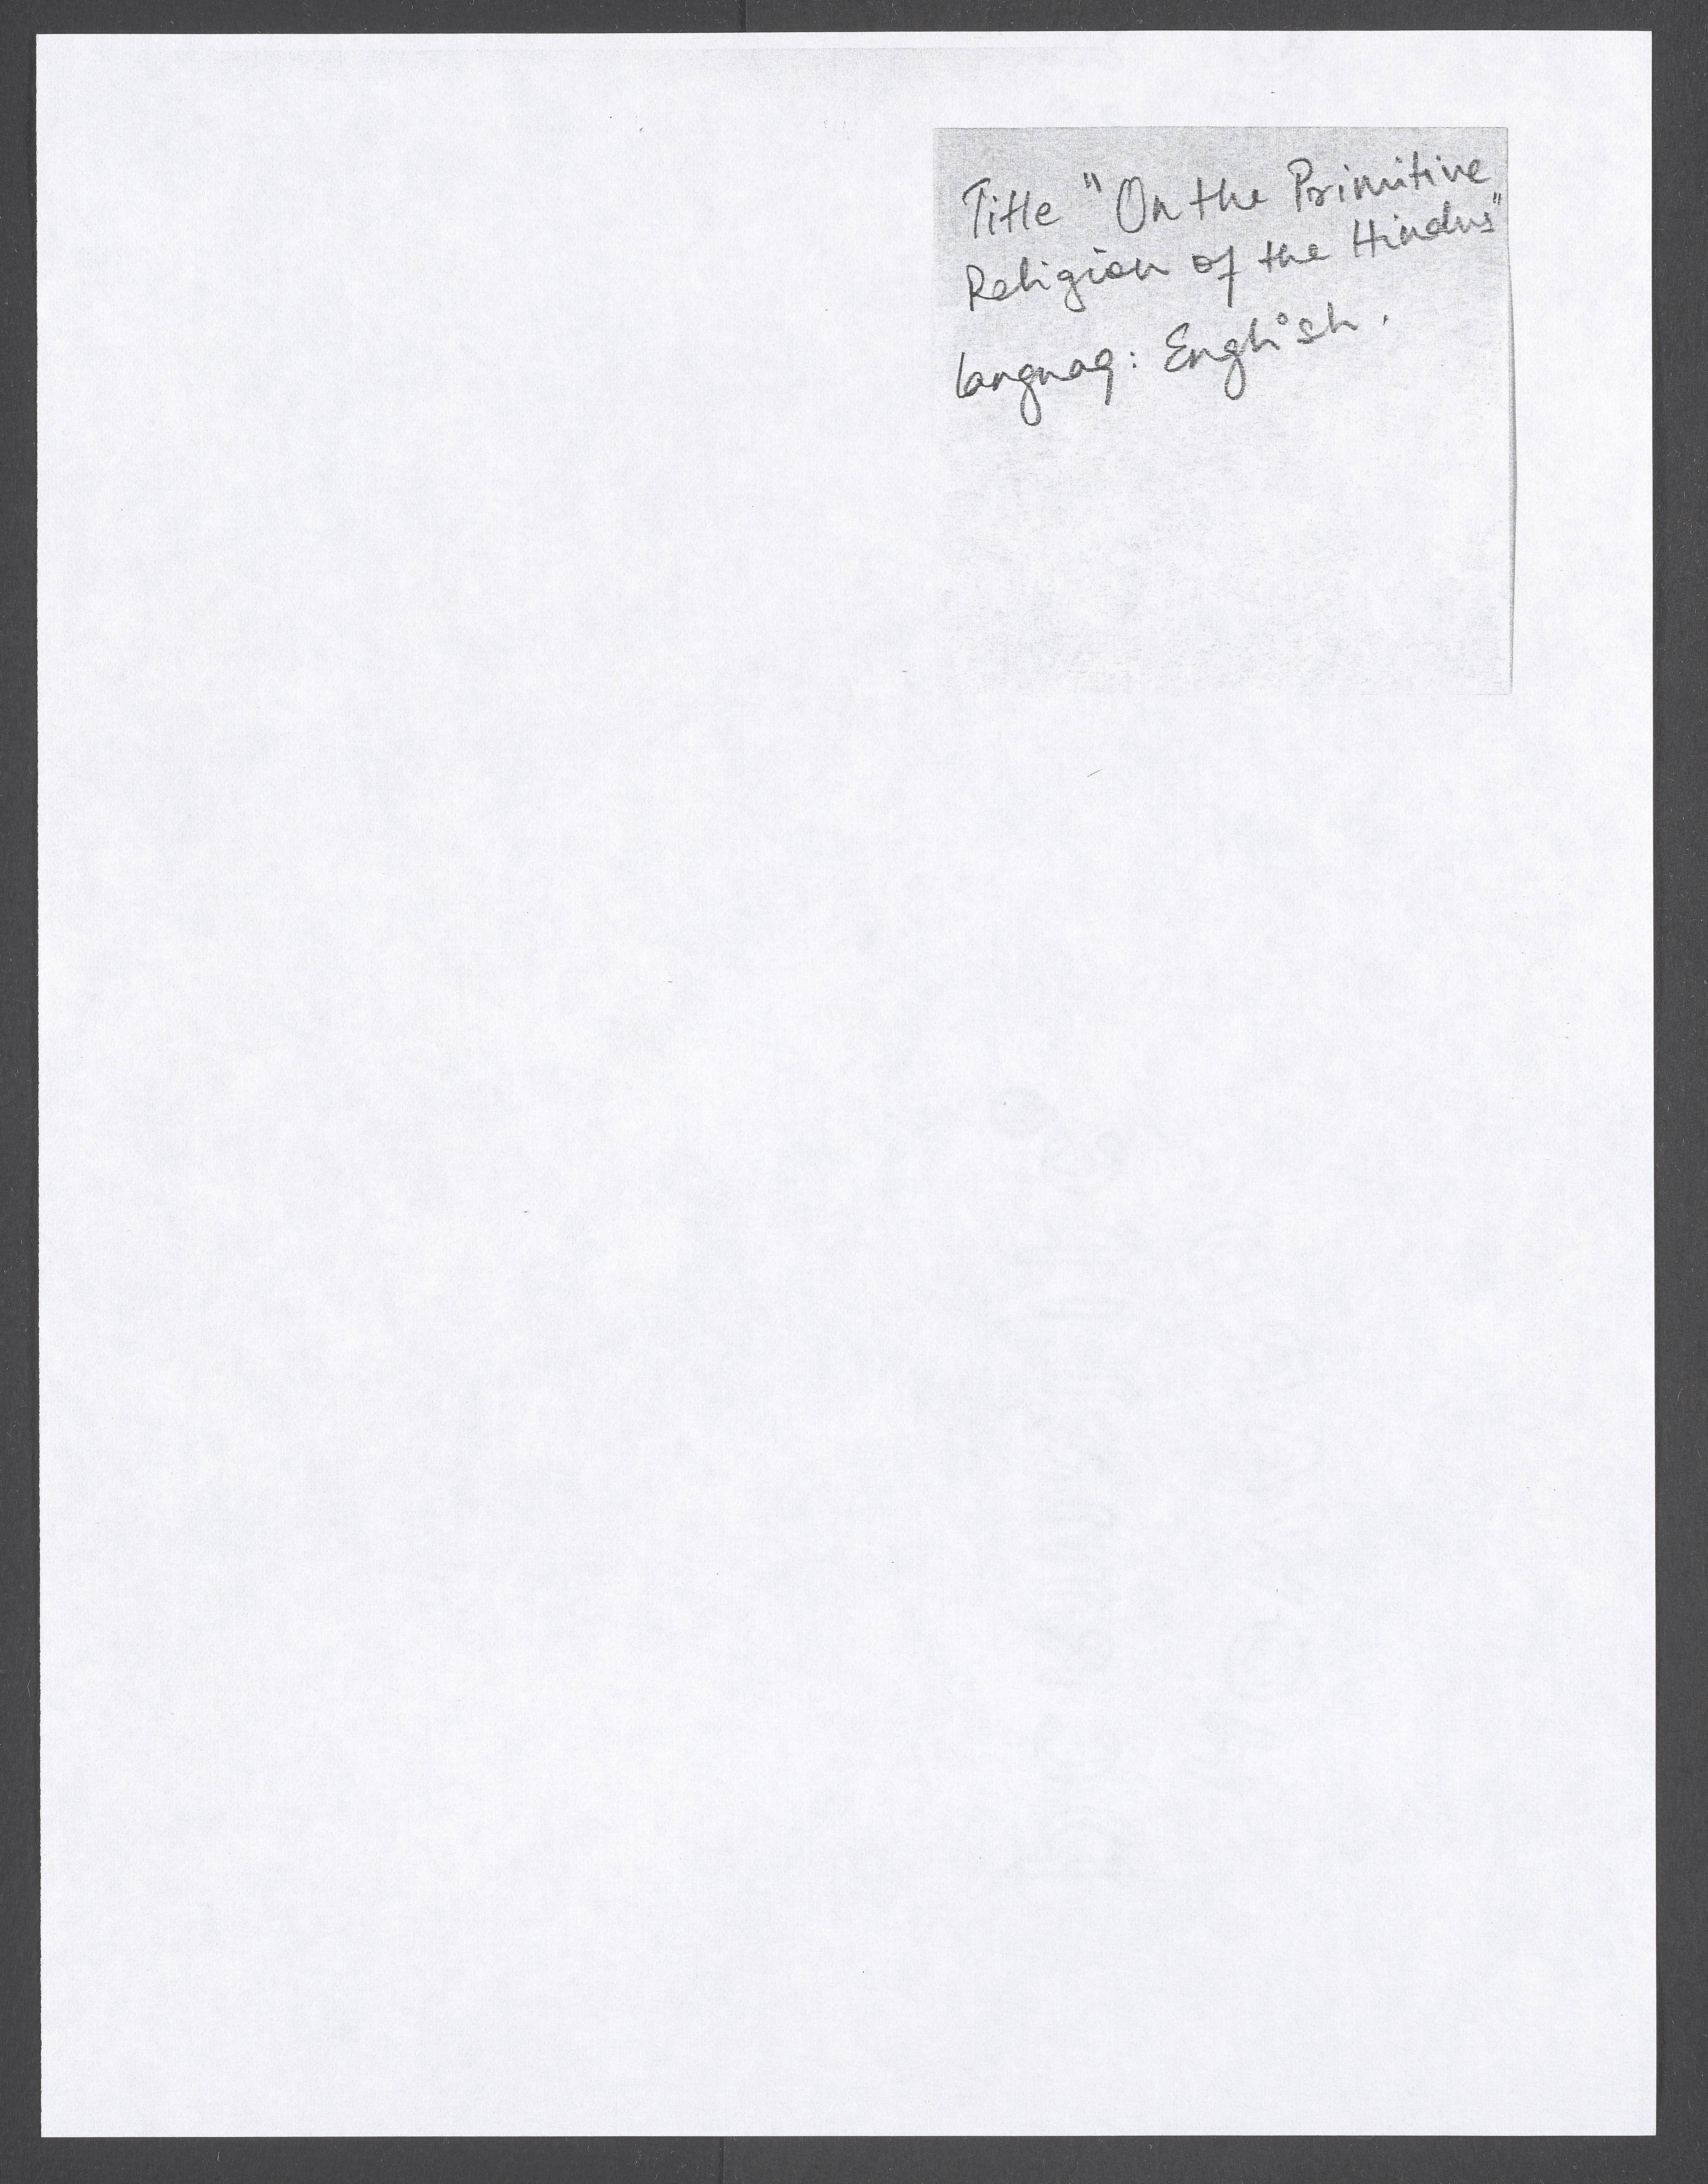 Title "On the Primitive
Religion of the Hindus"
Languag: English.